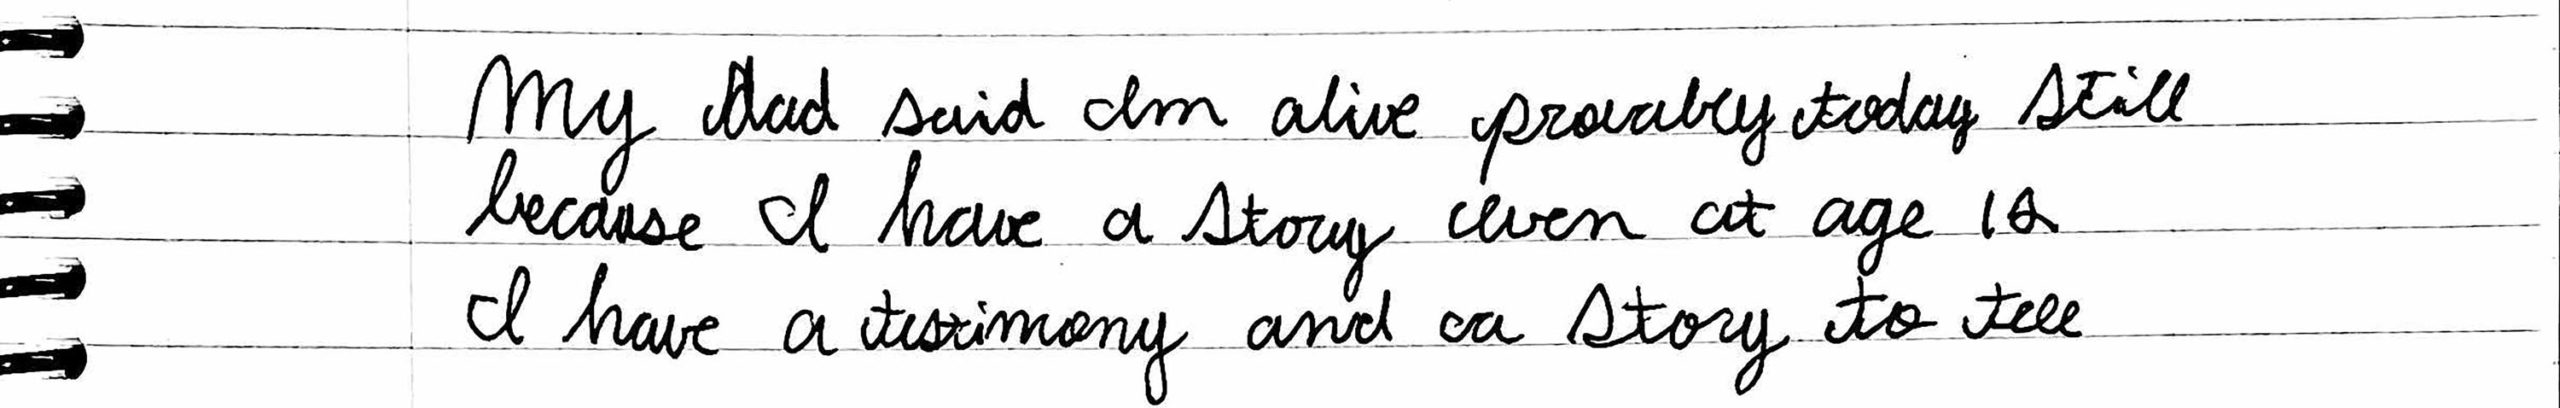 My Dad said Im alive provabley today still
because I have a story even at age 12
I have a testimony and a story to tell